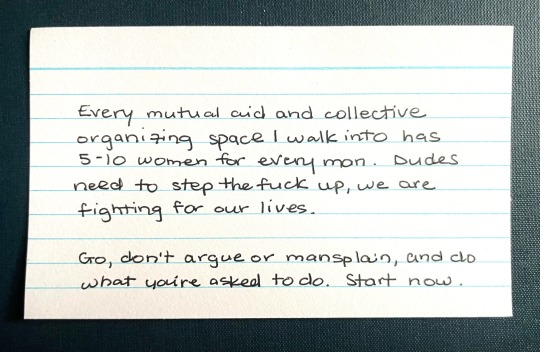 Every mutual aid and collective
organizing space I walk into has
5-10 women for every man. Dudes
need to step the fuck up, we are
fighting for our lives.
Go, don't argue or mansplain, and do
what you're asked to do. Start now.